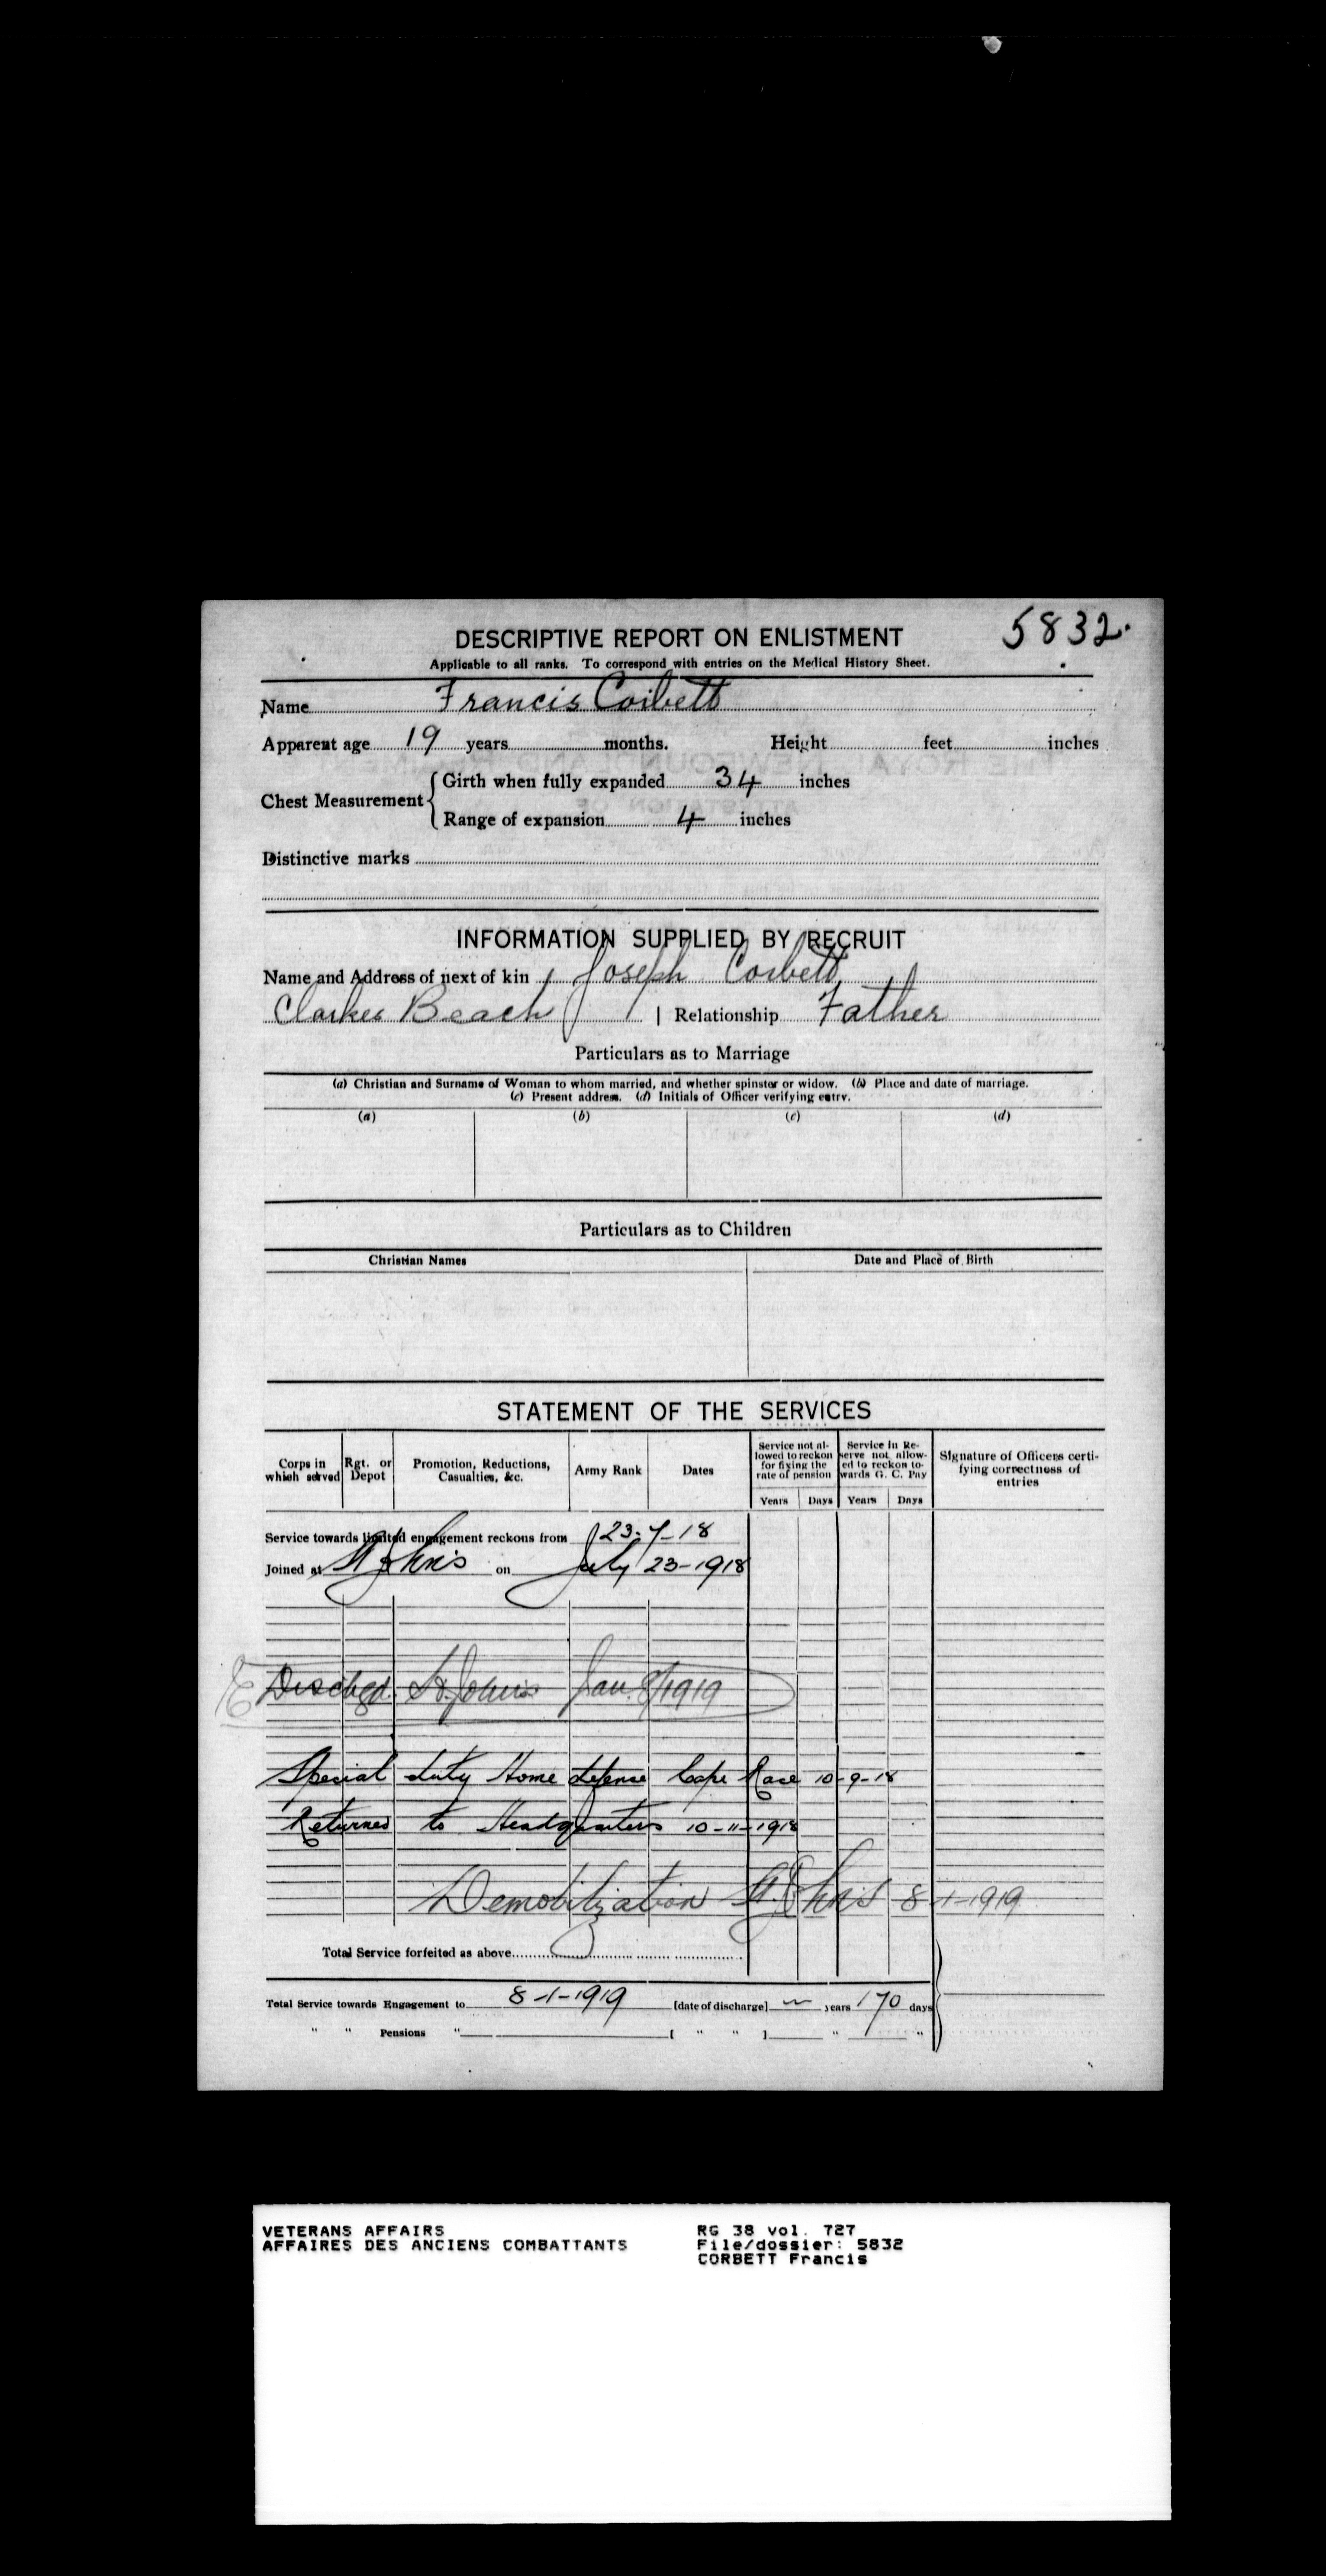 5832.
DESCRIPTIVE REPORT ON ENLISTMENT
Applicable to all ranks. To correspond with entries on the Medical History Sheet.
Name Francis Corbett
Apparent age 19 years months. Height feet inches
Chest Measurement
Girth when fully expanded 34 inches
Range of expansion 4 inches
Distinctive marks
INFORMATION SUPPLIED BY RECRUIT
Name and Address of next of kin Joseph Corbett
Clarkes Beach | Relationship Father
Particulars as to Marriage
(a) Christian and Surname of Woman to whom married, and whether spinster or widow. (b) Place and date of marriage.
(c) Present address. (d) Initials of Officer verifying entry.
(a) (b) (c) (d)
Particulars as to Children
Christian Names Date and Place of Birth
STATEMENT OF THE SERVICES
Corps in which served
Rgt. or Depot
Promotion, Reductions, Casualties, &c.
Army Rank
Dates
Service not allowed to reckon for fixing the rate of pension
Service in Reserve not allowed to reckon towards G. C. Pay
Signature of Officers certifying correctness of entries
Years Days Years Days
Service towards limited engagement reckons from 23-7-18
Joined at St Johns on July 23-1918
Dischgd. St. Johns Jan. 8/1919
Special duty Home defense Cape Race 10-9-18
Returned to Headquarters 10-11-1918
Demobilization St. Johns 8-1-1919
Total Service forfeited as above
Total Service towards Engagement to 8-1-1919 [date of discharge] — years 170 days
" " Pensions " [ " " ] " "
VETERANS AFFAIRS RG 38 vol. 727
AFFAIRES DES ANCIENS COMBATTANTS File/dossier: 5832
CORBETT Francis